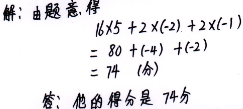 解：由题意，得
16×5+2×(-2)+2×(-1)
= 80 +(-4) +(-2)
= 74 (分)
答：他的得分是 74分